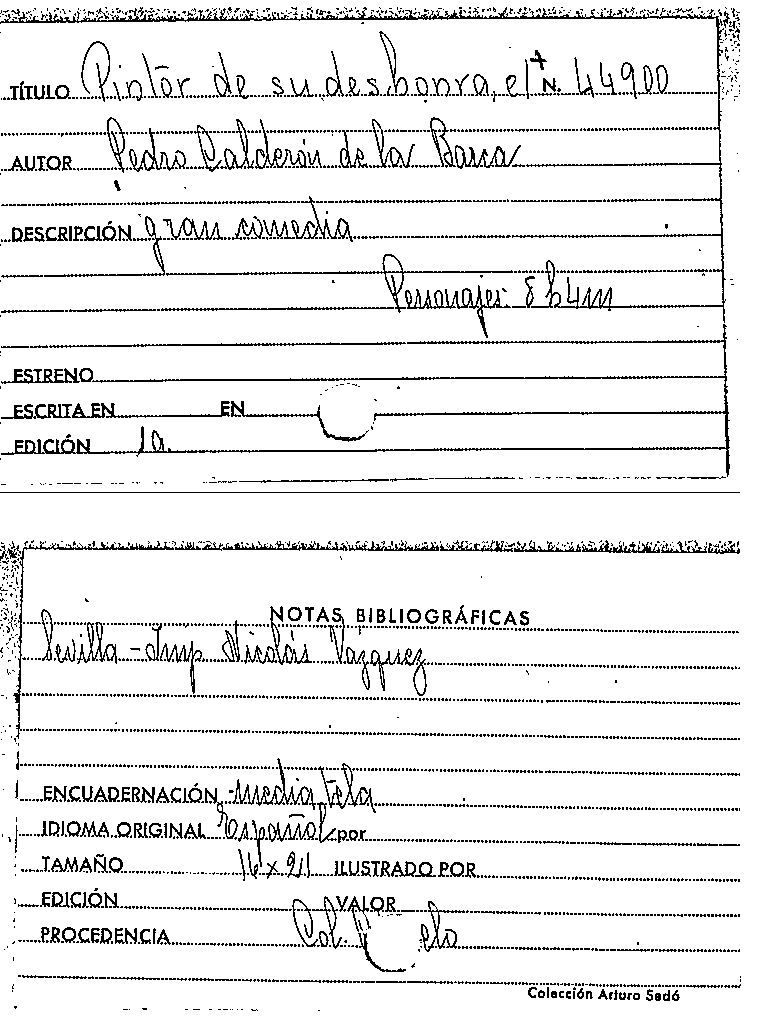 TÍTULO Pintor de su deshonra, el N. 44900
AUTOR Pedro Calderón de la Barca
DESCRIPCIÓN gran comedia
Personajes: 8 h 4 m
ESTRENO
ESCRITA EN EN
EDICIÓN 1a.
NOTAS BIBLIOGRÁFICAS
Sevilla - Imp Nicolás Vázquez
ENCUADERNACIÓN media tela
IDIOMA ORIGINAL Español por
TAMAÑO ILUSTRADO POR
EDICIÓN VALOR
PROCEDENCIA Col.
Colección Arturo Sedó